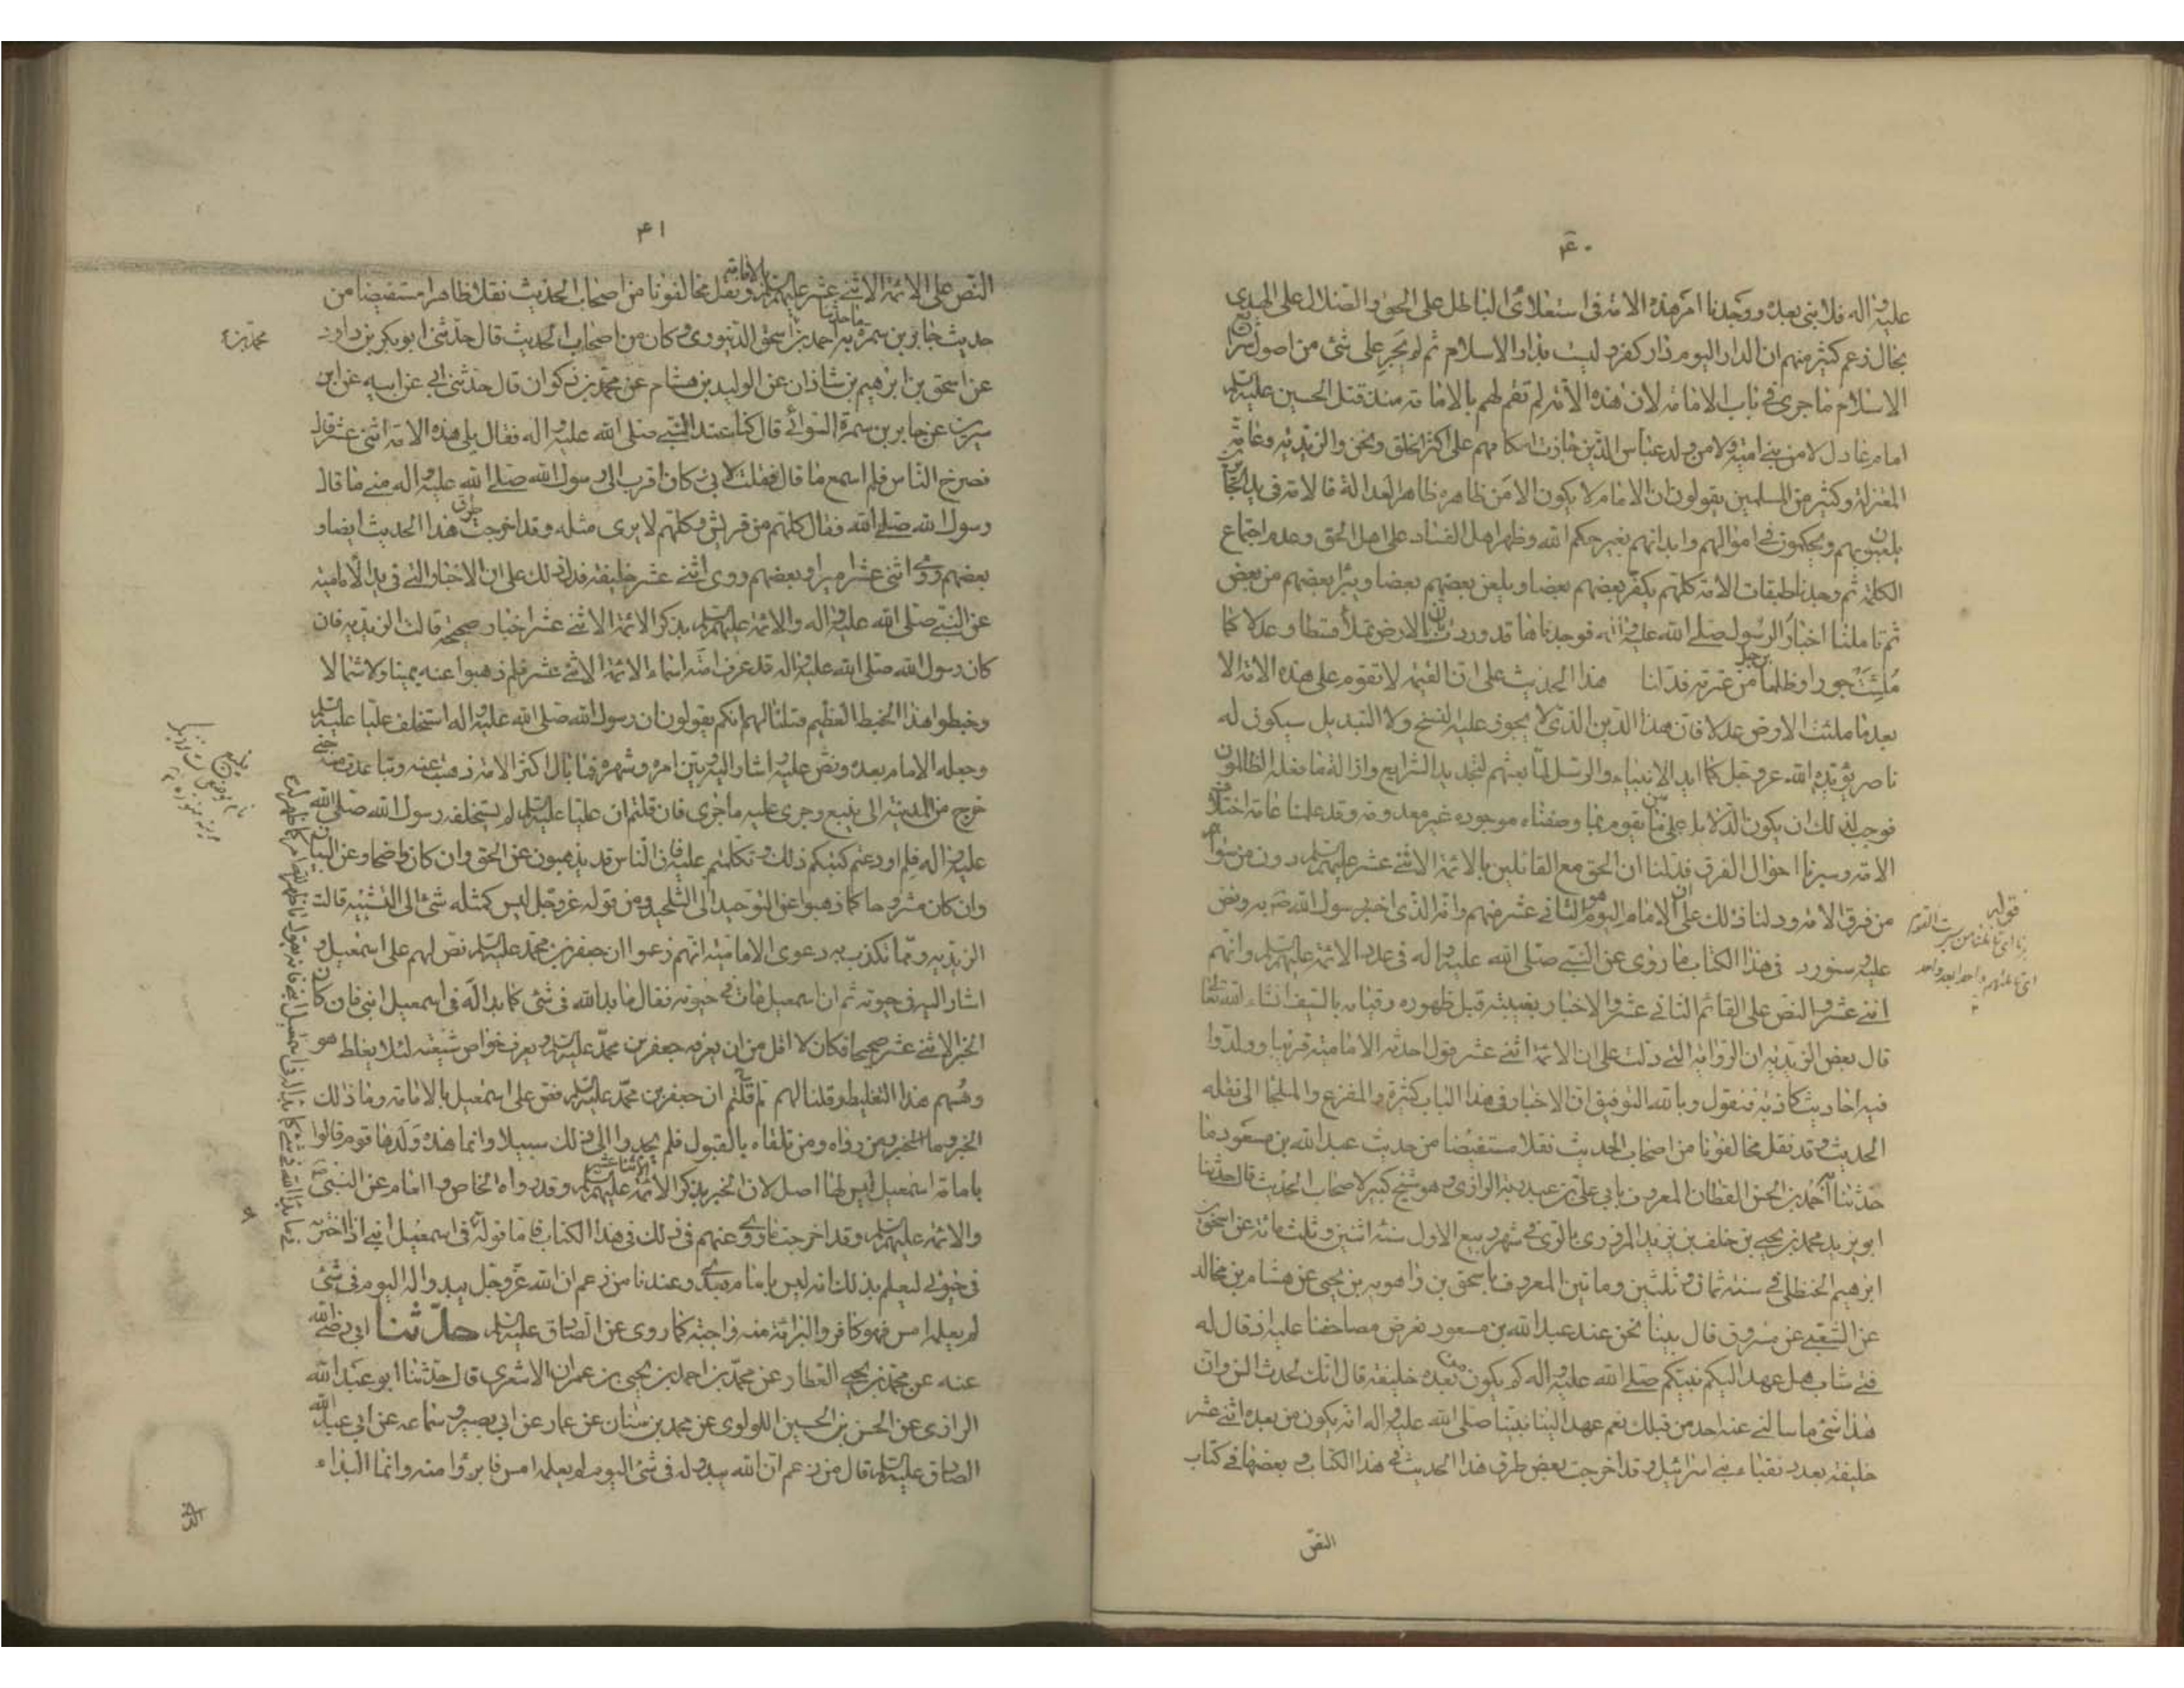 ۴۰
عليه واله فلا نبى بعده ووجدنا امر هذه الامة فى استعلاء الباطل على الحق والضلال على الهدى
بحال زعم كثير منهم ان الدار اليوم دار كفر وليست بدار الاسلام ثم لم يجر على شئ من اصول شرايع
الاسلام ما جرى فى باب الامامة لان هذه الامة لم تقم لهم بالامامة منذ قتل الحسين عليه السلم
امام عادل لا من بنى امية ولا من ولد عباس الذين جارت احكامهم على اكثر الخلق ونحن والزيدية وعامة
المعتزلة وكثير من المسلمين يقولون ان الامام لا يكون الا من ظاهره ظاهر العدالة فالامة فى يد الجائرين
يلعبون بهم ويحكمون فى اموالهم وابدانهم بغير حكم الله وظهر اهل الفساد على اهل الحق وعدم اجتماع
الكلمة ثم وجدنا طبقات الامة كلهم يكفر بعضهم بعضا ويلعن بعضهم بعضا ويبرأ بعضهم من بعض
ثم تاملنا اخبار الرسول صلى الله عليه واله فوجدناها قد وردت بان الارض تملأ قسطا وعدلا كما
ملئت جورا وظلما برجل من عترته فدلنا هذا الحديث على ان القيمة لا تقوم على هذه الامة الا
بعد ما ملئت الارض عدلا فان هذا الدين الذى لا يجوز عليه النسخ ولا التبديل سيكون له
ناصر يؤيده الله عز وجل كما ايد الانبياء والرسل لما بعثهم لتجديد الشرايع وازالة ما فعله الظالمون
فوجب لذلك ان يكون الدلايل على من يقوم بما وصفناه موجودة غير معدومة وقد علمنا عامة اختلاف
الامة وسبرنا احوال الفرق فدلنا ان الحق مع القائلين بالائمة الاثنى عشر عليهم السلم دون من سواهم
من فرق الامة ودلنا ذلك على ان الامام اليوم هو الثانى عشر منهم وانه الذى اخبر رسول الله ص به ونص
عليه وسنورد فى هذا الكتاب ما روى عن النبى صلى الله عليه واله فى عدد الائمة عليهم السلم وانهم
اثنى عشر والنص على القائم الثانى عشر والاخبار بغيبته قبل ظهوره وقيامه بالسيف انشاء الله تعالى
قال بعض الزيدية ان الرواية التى دلت على ان الائمة اثنى عشر قول احدثه الامامية قريبا وولدوا
فيه احاديث كاذبة فنقول وبالله التوفيق ان الاخبار فى هذا الباب كثيرة والمفزع والملجا الى نقلة
الحديث وقد نقل مخالفونا من اصحاب الحديث نقلا مستفيضا من حديث عبد الله بن مسعود ما
حدثنا به احمد بن الحسن القطان المعروف بابى على بن عبد ربه الرازى وهو شيخ كبير لاصحاب الحديث قال حدثنا
ابو يزيد محمد بن يحيى بن خلف بن يزيد المروزى بالرى فى شهر ربيع الاول سنة اثنين وثلث مائة عن اسحق بن
ابرهيم الحنظلى فى سنة ثمان وثلثين وماتين المعروف باسحق بن راهويه بن يحيى عن هشام بن مخالد
عن الشعبى عن مسروق قال بينا نحن عند عبد الله بن مسعود نعرض مصاحفنا عليه اذ قال له
فتى شاب هل عهد اليكم نبيكم صلى الله عليه واله كم يكون من بعده خليفة قال انك لحدث السن وان
هذا شئ ما سالنى عنه احد من قبلك نعم عهد الينا نبينا صلى الله عليه واله انه يكون من بعده اثنى عشر
خليفة بعدد نقباء بنى اسرائيل وقد اخرجت بعض طرق هذا الحديث فى هذا الكتاب وبعضها فى كتاب
النص
قوله
۴۱
النص على الائمة الاثنى عشر عليهم السلم بالامامة ونقل مخالفونا من اصحاب الحديث نقلا ظاهرا مستفيضا من
حديث جابر بن سمرة ما حدثنا به احمد بن اسحق الدينورى وكان من اصحاب الحديث قال حدثنى ابو بكر بن داود
عن اسحق بن ابرهيم بن شاذان عن الوليد بن هشام عن محمد بن ذكوان قال حدثنى ابى عن ابيه عن ابن
سيرين عن جابر بن سمرة السوائى قال كنا عند النبى صلى الله عليه واله فقال يلى هذه الامة اثنى عشر قال
فصرخ الناس فلم اسمع ما قال فقلت لابى وكان اقرب الى رسول الله صلى الله عليه واله منى ما قال
رسول الله صلى الله فقال كلهم من قريش وكلهم لا يرى مثله وقد اخرجت طرق هذا الحديث ايضا و
بعضهم روى اثنى عشر اميرا وبعضهم روى اثنى عشر خليفة فدل ذلك على ان الاخبار التى فى يد الامامية
عن النبى صلى الله عليه واله والائمة عليهم السلم بذكر الائمة الاثنى عشر اخبار صحيحة قالت الزيدية فان
كان رسول الله صلى الله عليه واله قد عرف امته اسماء الائمة الاثنى عشر فلم ذهبوا عنه يمينا وشمالا
وخبطوا هذا الخبط العظيم فقلنا لهم انكم يقولون ان رسول الله صلى الله عليه واله استخلف عليا عليه السلم
وجعله الامام بعده ونص عليه واشار اليه وبين امره وشهره فما بال اكثر الامة ذهبت عنه وتباعدت منه حتى
خرج من المدينة الى ينبع وجرى عليه ما جرى فان قلتم ان عليا عليه السلم لم يستخلفه رسول الله صلى الله
عليه واله فلم اودعتم كتبكم ذلك وتكلمتم عليه فان الناس قد يذهبون عن الحق وان كان واضحا وعن البيان
وان كان مشروحا كما ذهبوا عن التوحيد الى التلحيد ومن قوله عز وجل ليس كمثله شئ الى التشبيه قالت
الزيدية ومما تكذب به دعوى الامامية انهم زعموا ان جعفر بن محمد عليه السلم نص لهم على اسمعيل و
اشار اليه فى حيوته ثم ان اسمعيل مات فى حيوته فقال ما بدا لله فى شئ كما بدا له فى اسمعيل ابنى فان كان
الخبر الاثنى عشر صحيحا فكان لا اقل من ان يعرفه جعفر بن محمد عليه السلم ويعرف خواص شيعته لئلا يغلط هو
وهم هذا الغلط وقلنا لهم بم قلتم ان جعفر بن محمد عليه السلم نص على اسمعيل بالامامة وما ذلك
الخبر وما الخبر ومن رواه ومن تلقاه بالقبول فلم يجدوا الى ذلك سبيلا وانما هذه ولدها قوم قالوا
بامامة اسمعيل ليس لها اصل لان الخبر بذكر الائمة الاثنا عشر عليهم السلم وقد رواه الخاص والعام عن النبى ص
والائمة عليهم السلم وقد اخرجت ما روى عنهم فى ذلك فى هذا الكتاب فاما قوله فى اسمعيل ابنى اذا اخترمه
فى حيوتى ليعلم بذلك انه ليس بامام بعدى وعندنا من زعم ان الله عز وجل يبدو له اليوم فى شئ
لم يعلمه امس فهو كافر والبرائة منه واجبة كما روى عن الصادق عليه السلم حدثنا ابى رضى الله
عنه عن محمد بن يحيى العطار عن محمد بن احمد بن يحيى بن عمران الاشعرى قال حدثنا ابو عبد الله
الرازى عن الحسن بن الحسين اللولوى عن محمد بن سنان عن عمار عن ابى بصير وسماعه عن ابى عبد الله
الصادق عليه السلم قال من زعم ان الله يبدو له فى شئ اليوم لم يعلمه امس فابرؤا منه وانما البداء
الذى
ينبع